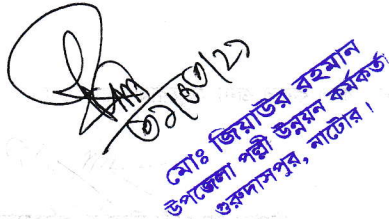 ০১/০৩/২১
মোঃ জিয়াউর রহমান
উপজেলা পল্লী উন্নয়ন কর্মকর্তা
গুরুদাসপুর, নাটোর।